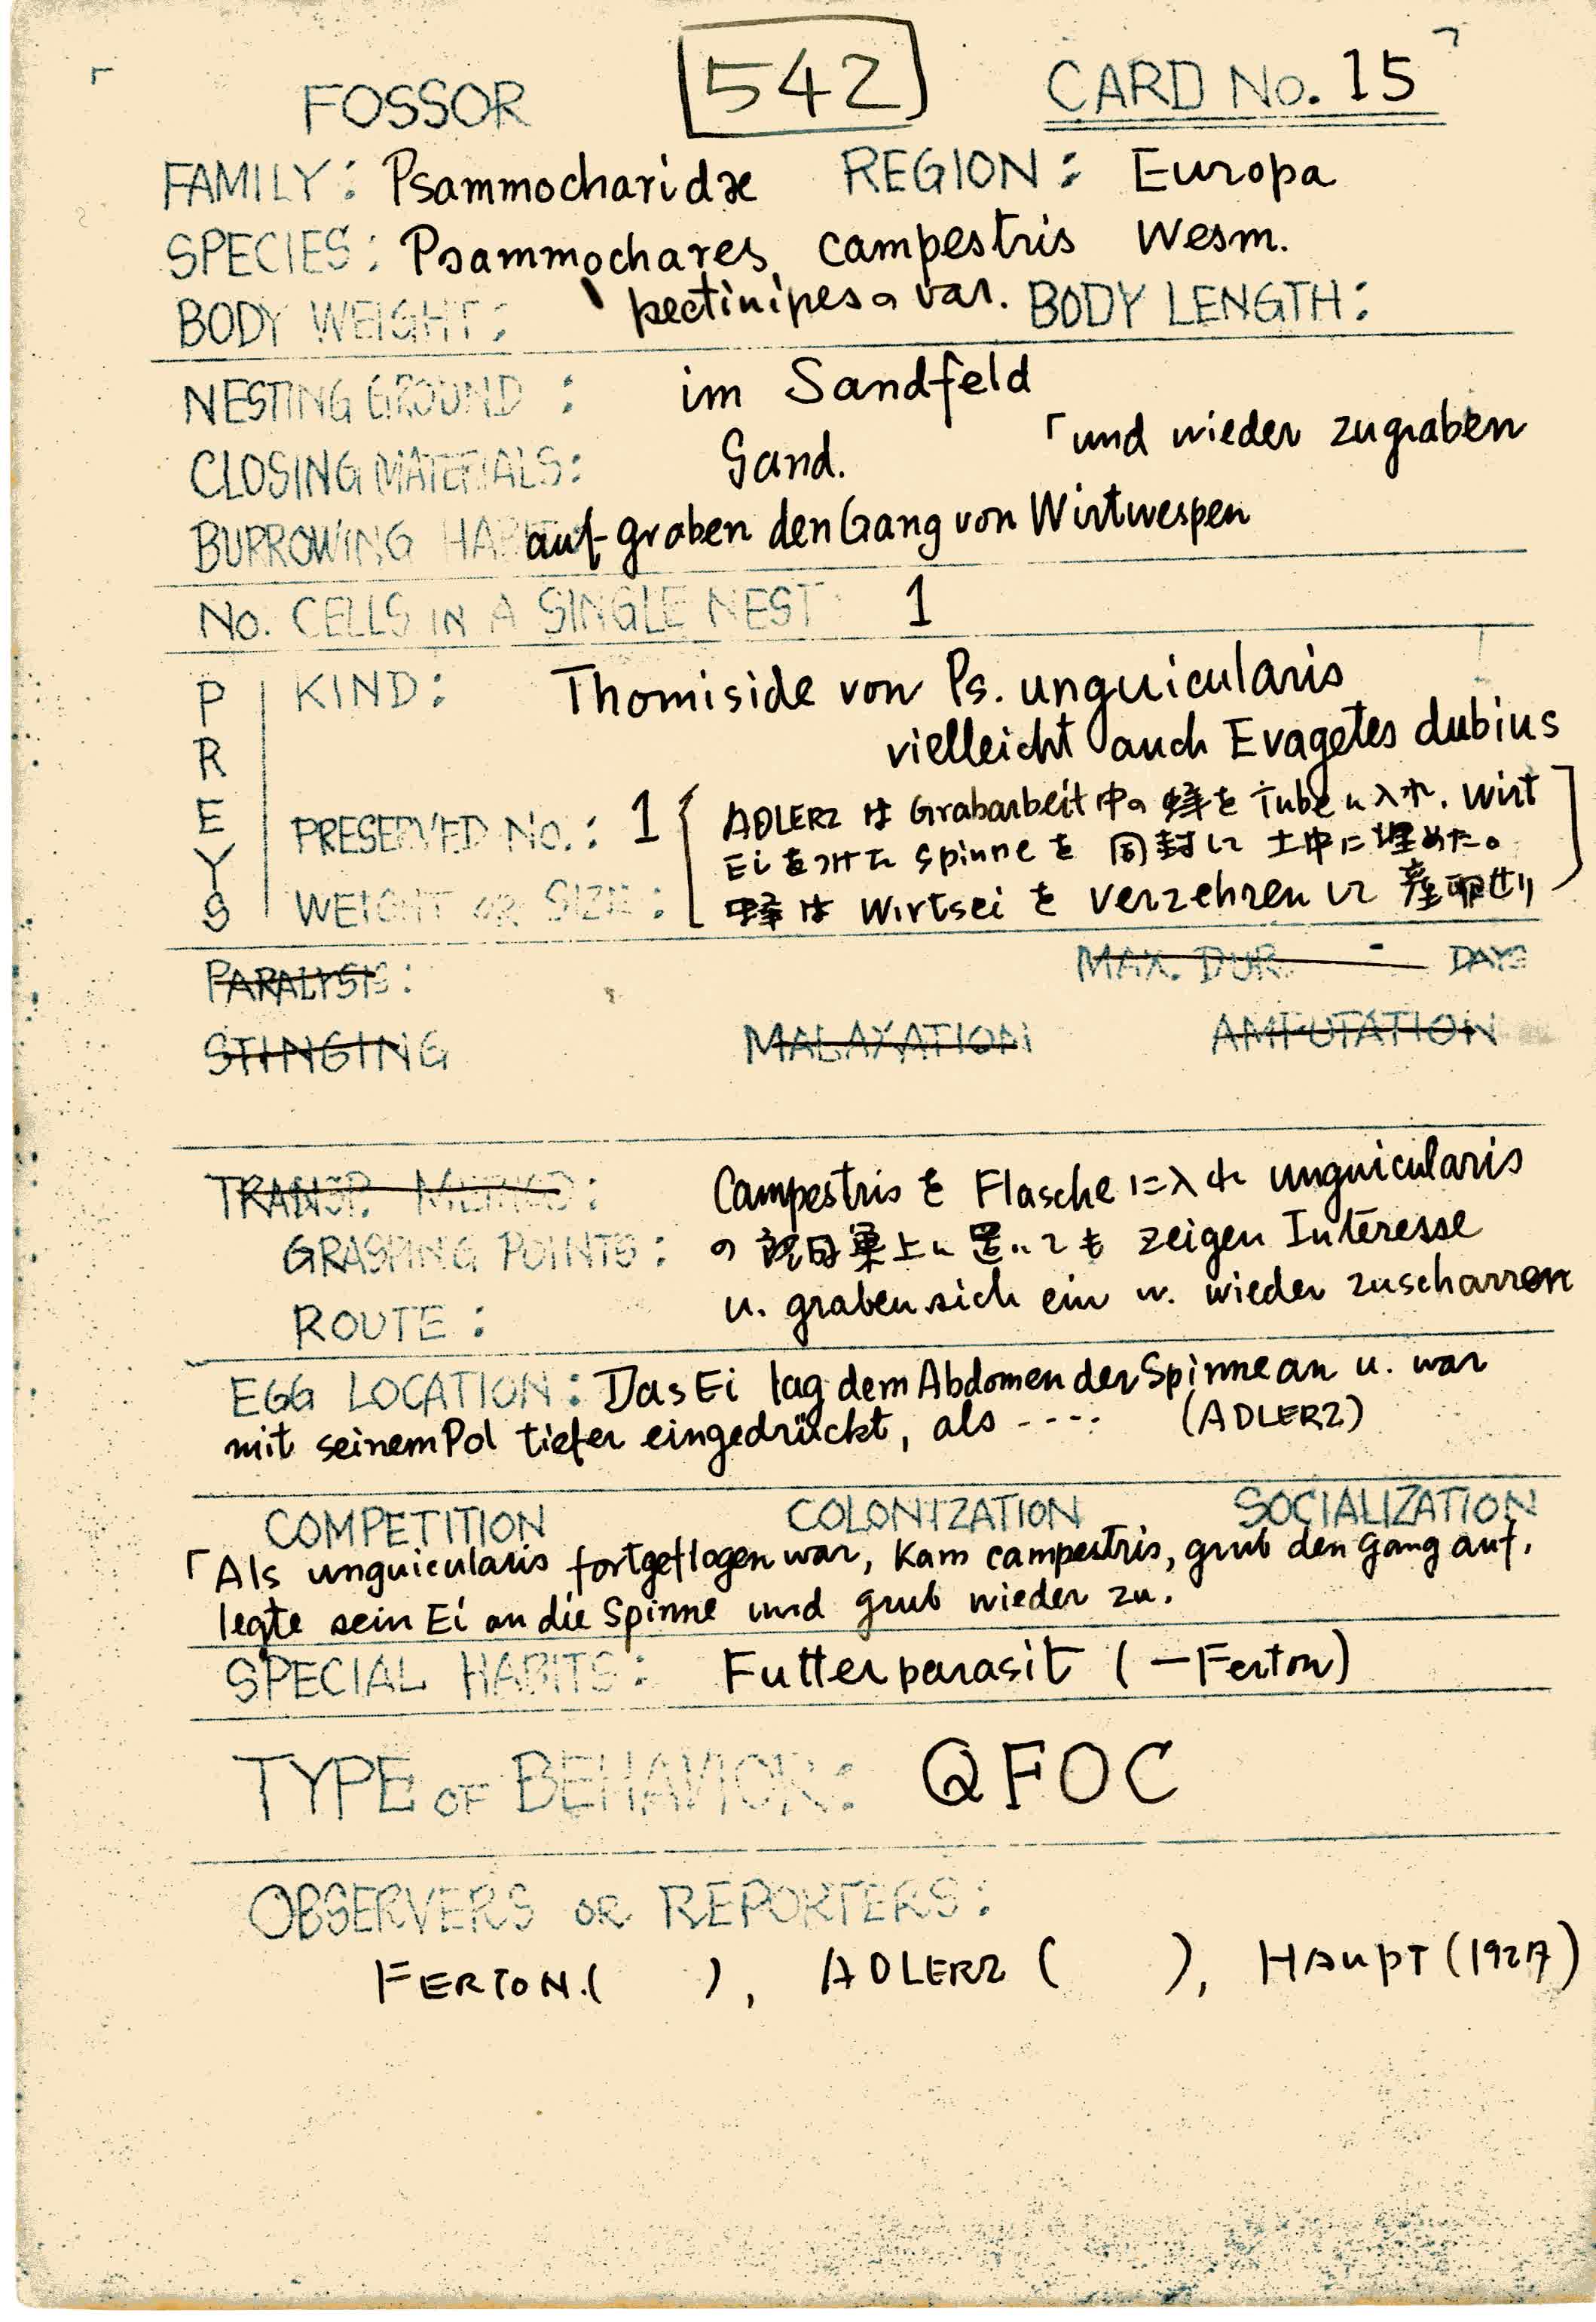 FOSSOR 542 CARD No. 15
FAMILY: Psammocharidæ REGION: Europa
SPECIES: Psammochares campestris Wesm.
BODY WEIGHT: pectinipes の var. BODY LENGTH:
NESTING GROUND: im Sandfeld
「und wieder zugraben
CLOSING MATERIALS: Sand.
BURROWING HABIT auf graben den Gang von Wirtwespen
No. CELLS IN A SINGLE NEST 1
PREYS
KIND: Thomiside von Ps. unguicularis
vielleicht auch Evagetes dubius
PRESERVED No.: 1 [ADLERZ は Grabarbeit 中の 蜂を Tube に入れ. Wirt
Ei をつけた Spinne を 同封して 土中に埋めた。
WEIGHT OR SIZE: 蜂は Wirtsei を verzehren して 産卵せり]
PARALYSIS: MAX. DUR. - DAYS
STINGING MALAXATION AMPUTATION
TRANSP. METHOD: Campestris を Flasche に入れ unguicularis
GRASPING POINTS: の 巣上に置いても zeigen Interesse
ROUTE: u. graben sich ein u. wieder zuscharren
EGG LOCATION: Das Ei lag dem Abdomen der Spinne an u. war
mit seinem Pol tiefer eingedrückt, als ---- (ADLERZ)
COMPETITION COLONIZATION SOCIALIZATION
「Als unguicularis fortgeflogen war, kam campestris, grub den Gang auf,
legte sein Ei an die Spinne und grub wieder zu.
SPECIAL HABITS: Futterparasit (—Ferton)
TYPE OF BEHAVIOR: QFOC
OBSERVERS OR REPORTERS:
FERTON.( ), ADLERZ ( ), HAUPT (1927)